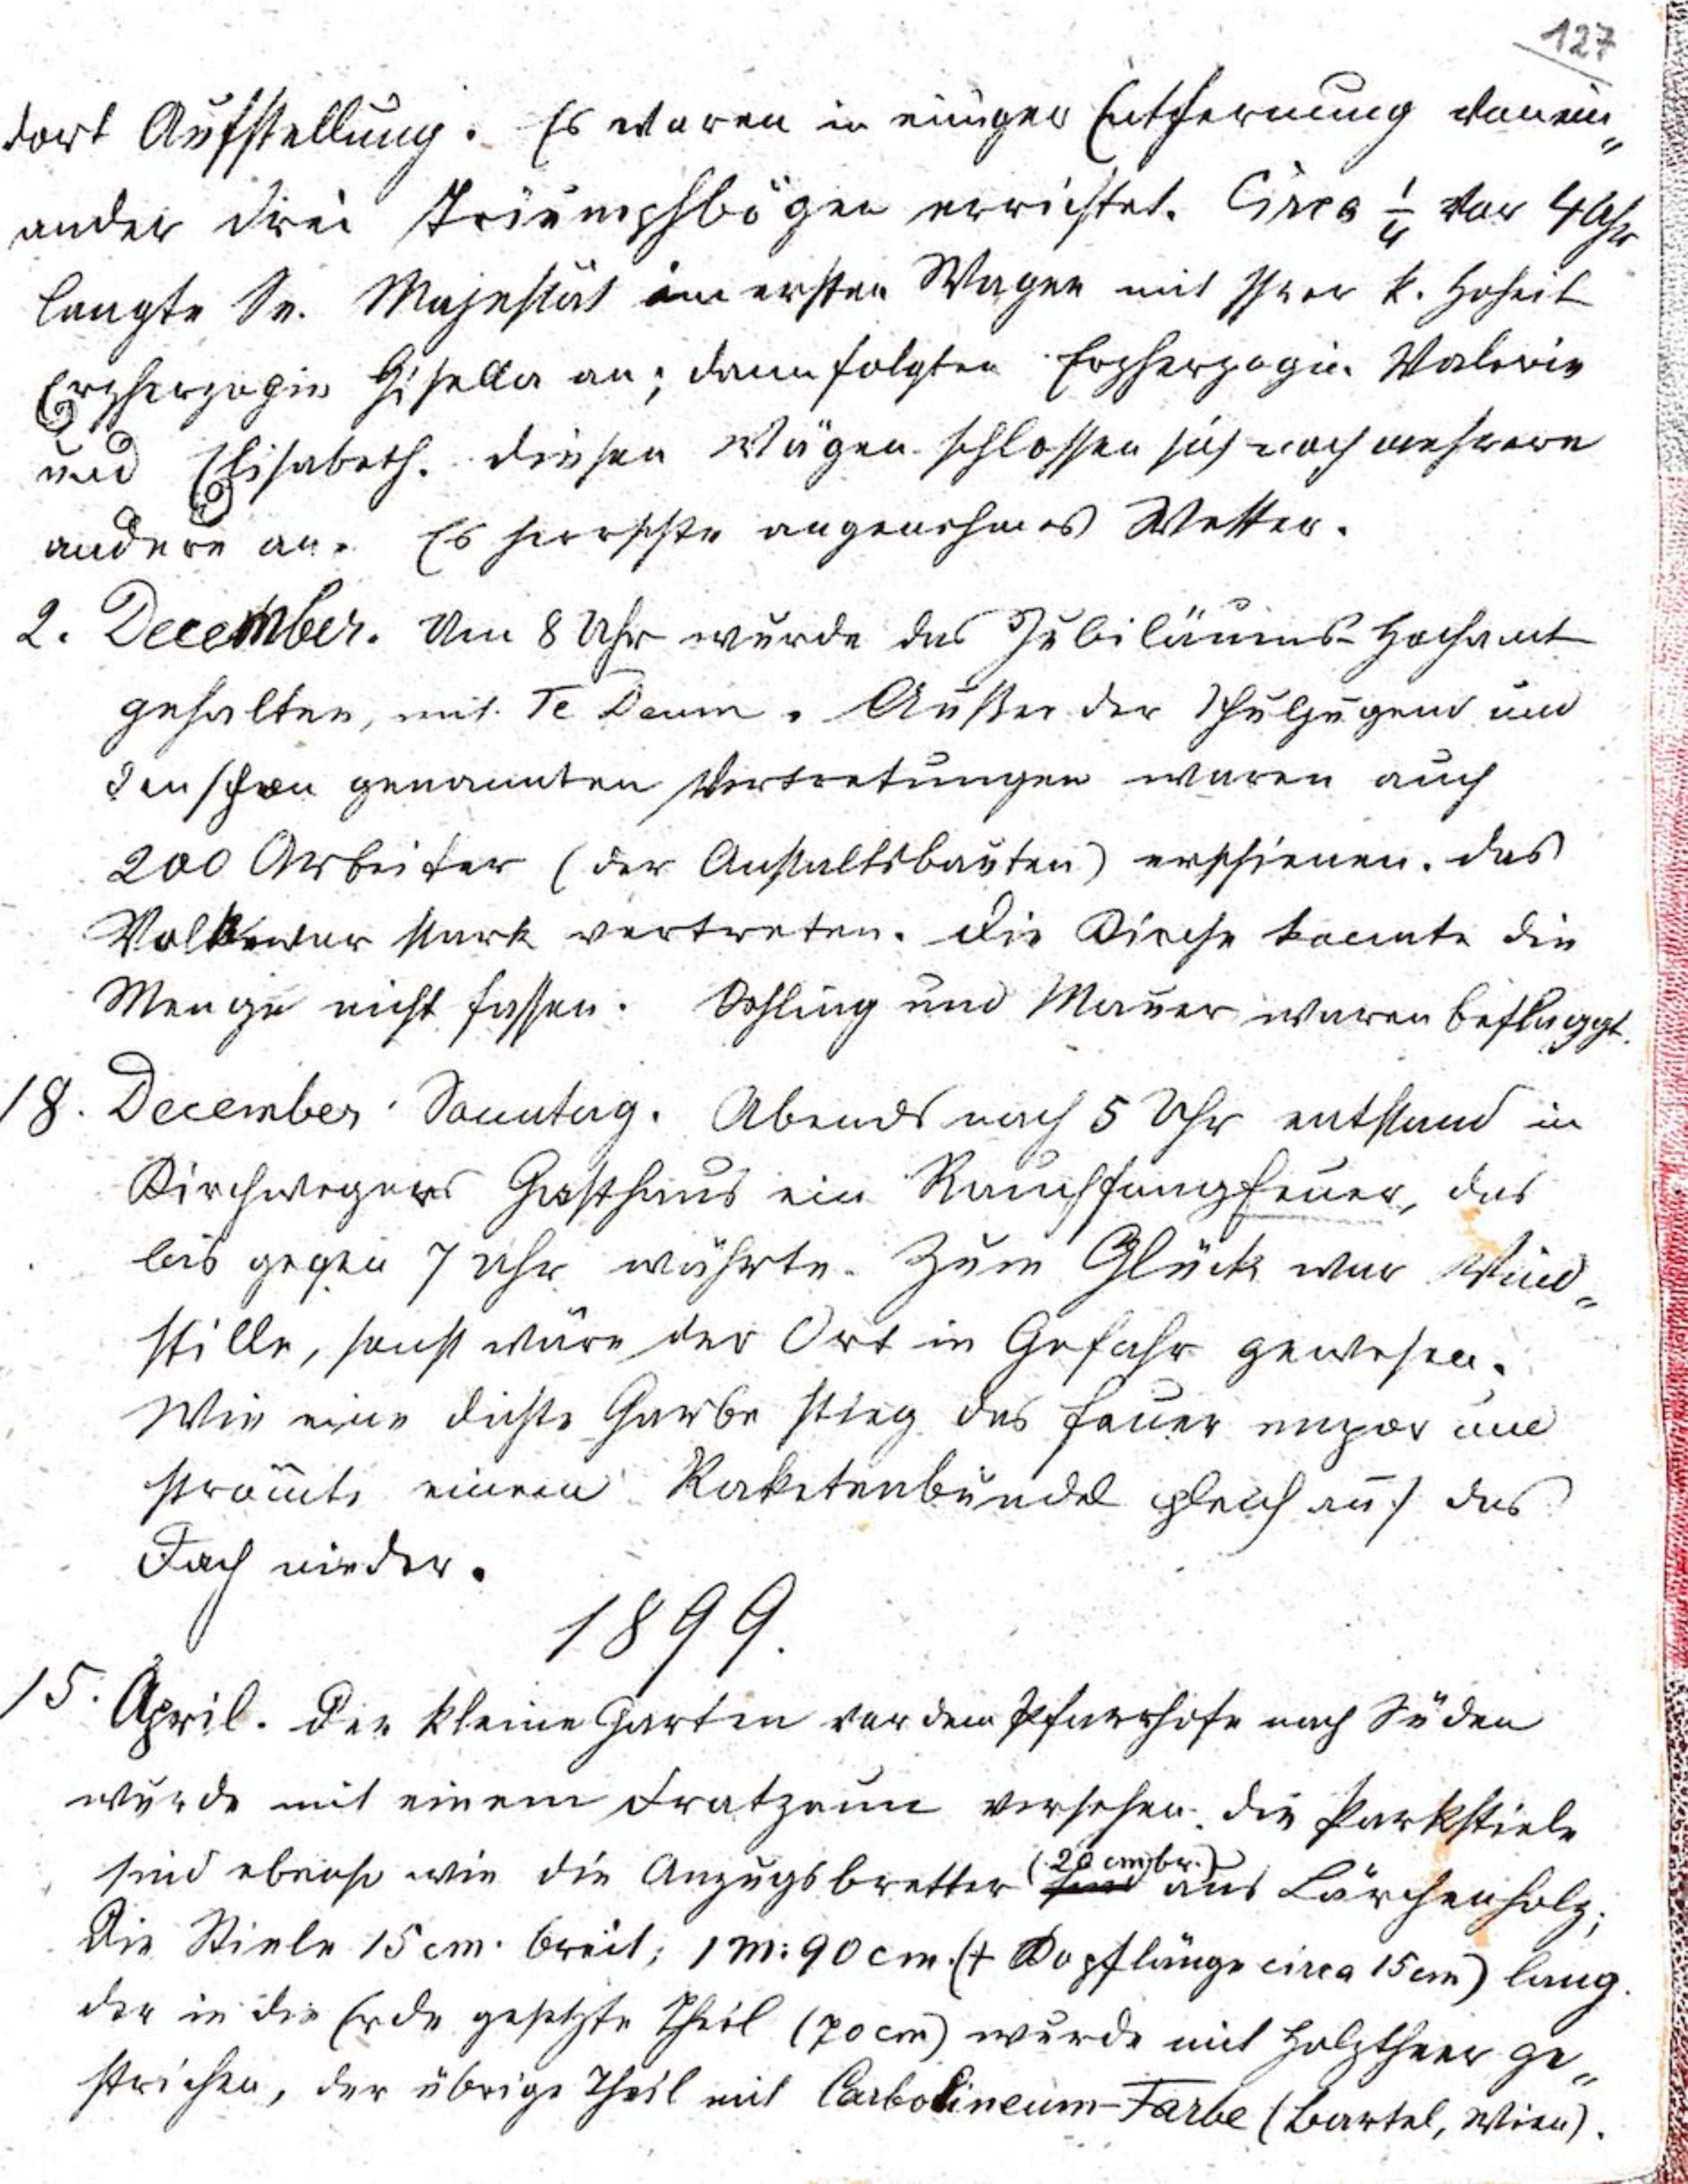 127
dort Aufstellung. Es waren in einiger Entfernung vonein„
ander drei Triumphbögen errichtet. Circa ¼ vor 4 Uhr
langte Se. Majestät im ersten Wagen mit Ihrer k. Hoheit
Erzherzogin Gisella an; dann folgten Erzherzogin Valerie
und Elisabeth. Diesen Wägen schlossen sich noch mehrere
andere an. Es herrschte angenehmes Wetter.
2. December. Um 8 Uhr wurde das Jubiläums-Hochamt
gehalten, mit Te Deum. Außer der Schuljugend und
den schon genannten Vertretungen waren auch
200 Arbeiter (der Anstaltsbauten) erschienen. Das
Volk war stark vertreten. Die Kirche konnte die
Menge nicht fassen. Oehling und Mauer waren beflaggt.
18. December. Sonntag. Abends nach 5 Uhr entstand in
Kirchwegers Gasthaus ein Rauchfangfeuer, das
bis gegen 7 Uhr währte. Zum Glück war Wind„
stille, sonst wäre der Ort in Gefahr gewesen.
Wie eine dichte Garbe stieg das Feuer empor und
strömte einem Raketenbündel gleich auf das
Dach nieder.
1899.
15. April. Der kleine Garten vor dem Pfarrhofe nach Süden
wurde mit einem Dratzaun versehen. Die Parkstiele
sind ebenso wie die Anzugsbretter (20 cm br.) sind aus Lärchenholz;
Die Stiele 15 cm. breit; 1 m: 90 cm. (+ Kopflänge circa 15 cm) lang.
der in die Erde gesetzte Theil (70 cm) wurde mit Holztheer ge„
strichen, der übrige Theil mit Carbolineum-Farbe (Bartel, Wien).